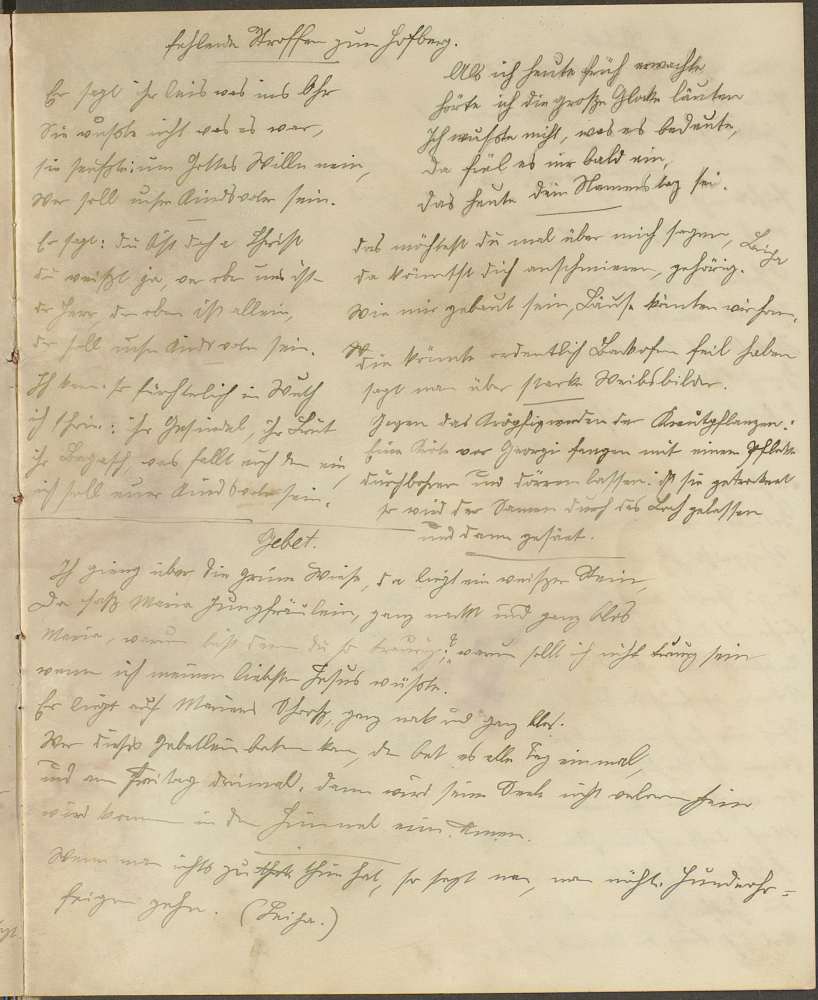 fehlende Stroffen zum Hofberg.
Er sagt ihr leis was ins Ohr
Sie wußte nicht was es war,
sie seufzte: um Gottes Willn nein,
Wer soll unser Kindsvater sein.
Er sagt: du bist doch a Christ
du weißt ja, wer oben uns ist
der Herr, der oben ist allein,
der soll unser Kindsvater sein.
Ich kam so fürchterlich in Wuth
ich schrie: ihr Gesindel, ihr Brut
ihr Bagasch, was fallt euch den ein,
ich soll euer Kindsvater sein.
Als ich heute früh erwachte
hörte ich die große Glocke läuten
Ich wußte nicht, was es bedeute,
da fiel es mir bald ein,
das heute dein Namenstag sei.
das möchtest du mal über mich sagen,
da könntst dich anschmieren, gehörig.
Wie mir gebaut sein, Läuse könnten wir han.
Die könnte ordentlich Backofen feil haben
sagt man über starke Weibsbilder.
Gegen das Kröpfigwerden der Krautpflanzen:
Eine Kröte vor Georgi fangen mit einem Pflock
durchbohren und dörren lassen: ist sie getrocknet
so wird der Samen durch das Loch gelassen
und dann gesäet.
Gebet.
Ich gieng über die grüne Wiese, da liegt ein weißer Stein,
Da saß Maria Jungfräulein, ganz nackt und ganz blos
Maria, warum bist denn du so traurig? warum sollt ich nicht traurig sein
wenn ich meinen liebsten Jesus wüßte.
Er liegt auf Mariens Schooß, ganz nakt und ganz blos.
Wer dieses Gebetlein beten kan, der bet es alle Tag einmal,
und am Freitag dreimal, dann wird seine Seele nicht verloren sein
wird kommen in den Himmel ein. Amen.
Wenn man nichts zu thun hat, so sagt man, man möchte Hundsohr=
feigen gehn. (Leiha.)